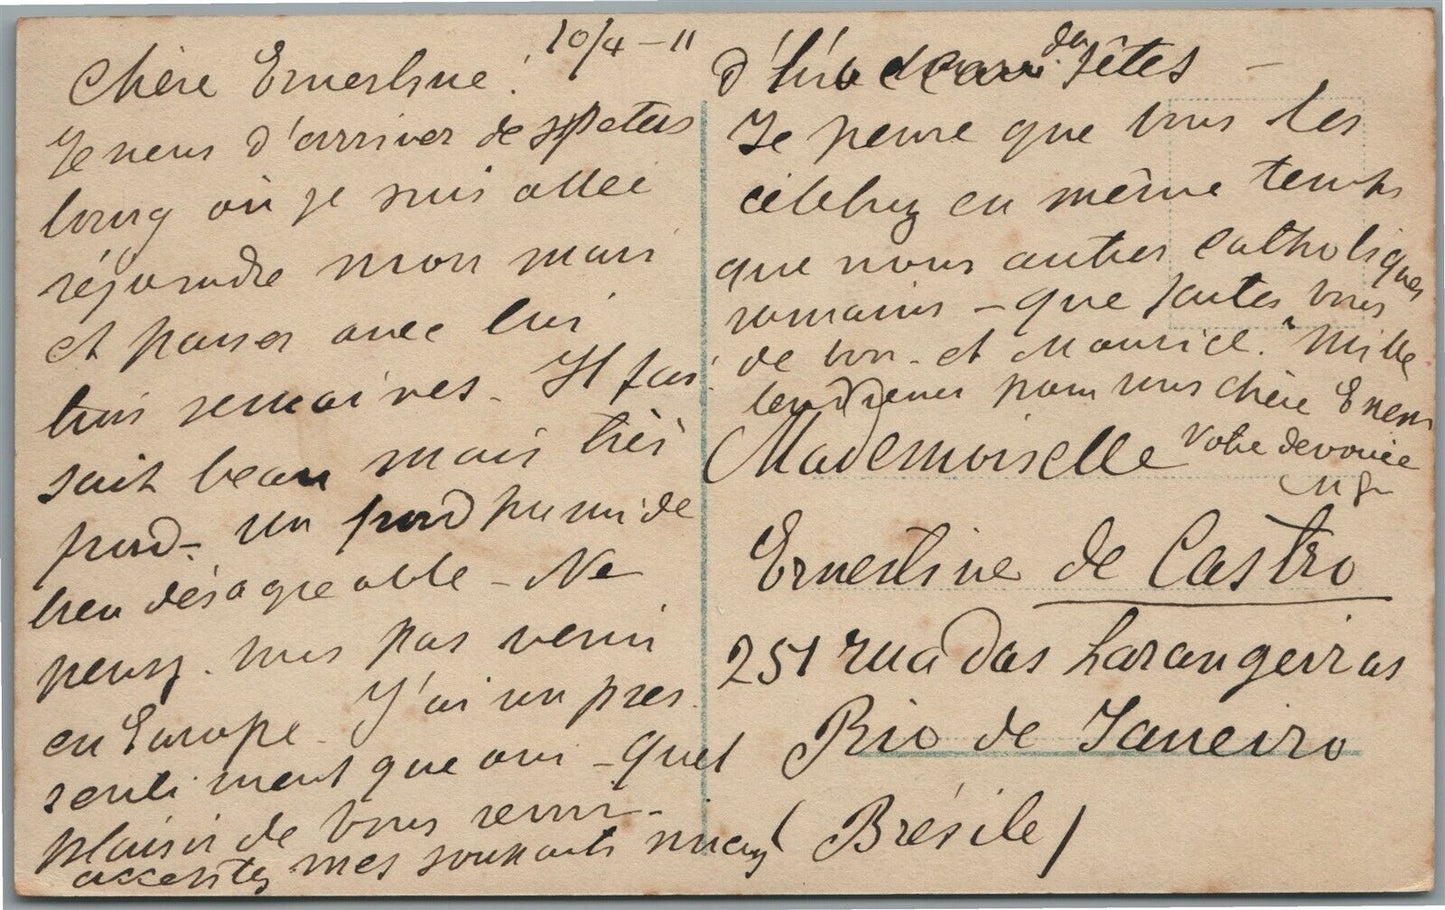 10/4 - 11
Chère Ernestine!
Je viens d'arriver de Péters
bourg où je suis allée
réjoindre mon mari
et passer avec lui
trois semaines. Il fai-
sait beau mais très
froid - un froid humide
bien désagreable - Ne
pensez-vous pas venir
en Europe. J'ai un pres-
sentiment que oui - Quel
plaisir de vous revoir -
acceptez mes souhaits
d' des fêtes -
Je pense que vous les
célébrez en même temps
que nous autres catholiques
romains - que faites vous
de bon - et Maurice? Mille
tendresses pour vous chère Ernes
Votre devouée
Mademoiselle
Ernestine de Castro
251 rua das Larangeiras
Rio de Janeiro
(Brésile)